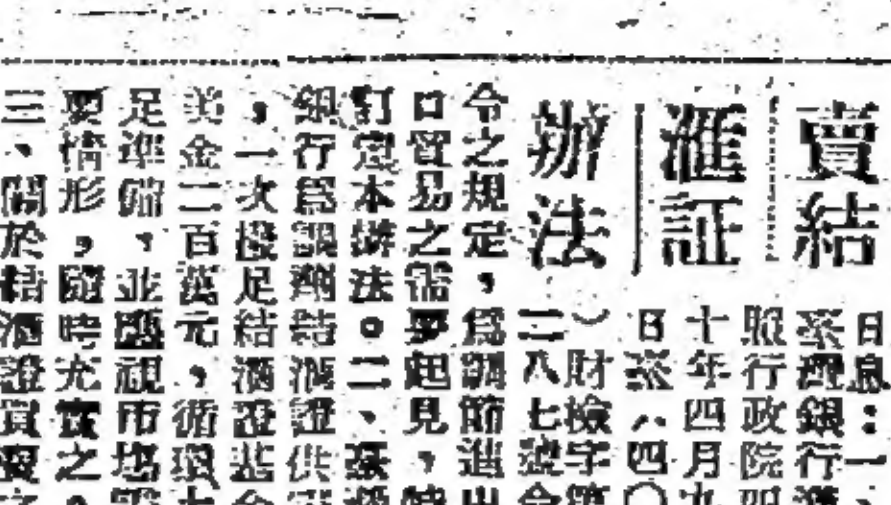 賣結
滙証
辦法
日息：一、
臺灣銀行
照行政院
十年四月九
日臺（四〇
）財檢字第
二八七號令
令之規定，爲調節進出
口貿易之需要起見，
訂定本辦法。二、臺
銀行爲調劑結滙證供需
，一次撥足結滙證基金
美金二百萬元，循環
足準備，並視市場需
要情形，隨時充實之。
三、關於結滙證買賣之